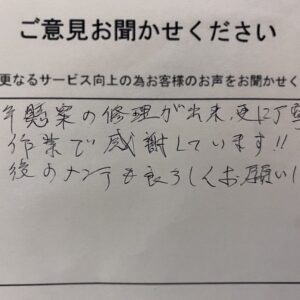 ご意見お聞かせください
更なるサービス向上の為お客様のお声をお聞かせく
年懸案の修理が出来、更に丁寧
作業で感謝しています!!
後のメンテも良ろしくお願いし